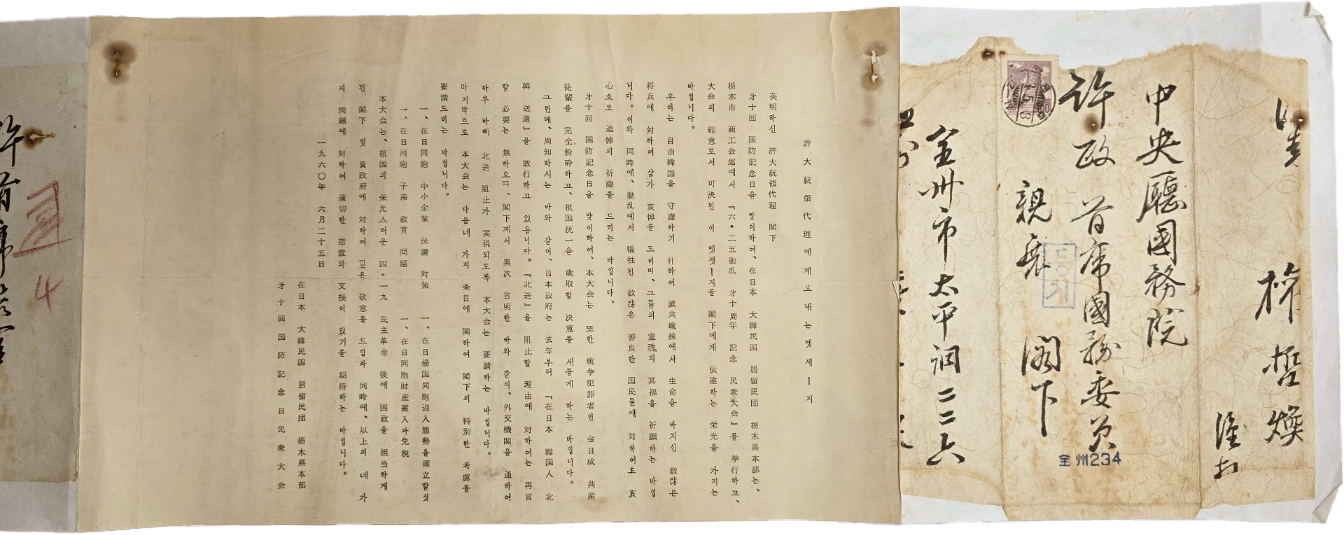 中央廳國務院
許政 首席國務委員
親展 閣下
全州市太平洞二二六
全州234
許大統領代理에게보내는멧세ー지
英明하신 許大統領代理 閣下
才十回 國防記念日을 맞이하여、在日本 大韓民国 居留民団 栃木県本部는、
栃木市 商工会館에서 「六・二五動乱 才十周年 記念 民衆大会」를 挙行하고、
大会의 総意로서 可決된 이 멧세ー지를 閣下에게 伝達하는 栄光을 가지는
바입니다。
우리는 自由韓国을 守護하기 위하여 滅共戦線에서 生命을 바치신 数많은
将兵에 対하여 삼가 哀悼를 드리며、그들의 霊魂의 冥福을 祈願하는 바입
니다。이와 同時에、動乱에서 犠牲된 数많은 善良한 国民들에 対하여도 衷
心으로 追悼의 祈禱를 드리는 바입니다。
才十回 国防記念日을 맞이하여、本大会는 또한 戦争犯罪者인 金日成 共産
徒輩를 完全粉砕하고、祖国統一을 戦取할 決意를 새롭게 하는 바입니다。
그런데、周知하시는 바와 같이、日本政府는 去年부터 「在日本 韓国人 北
韓 送還」을 敢行하고 있읍니다。「北送」을 阻止할 理由에 対하여는 再言
할 必要는 無하오며、閣下께서 累次 言明한 바와 같이、外交機関을 通하여
하루 바삐 北送 阻止가 実現되도록 本大会는 要請하는 바입니다。
마지막으로 本大会는 다음네 가지 条目에 関하여 閣下의 特別한 考慮를
要請드리는 바입니다。
一、在日同胞 中小企業 保護 対策 一、在日帰国同胞迎入態勢를確立할것
一、在日同胞 子弟 教育 問題 一、在日同胞財産搬入時免税
本大会는、祖国의 栄光스러운 四・一九 民主革命 後에 国政을 担当하게
된 閣下 및 貴政府에 対하여 깊은 敬意를 드림과 同時에、以上의 네 가
지 問題에 対하여 適切한 措置와 支援이 있기를 期待하는 바입니다。
一九六〇年 六月二十五日
在日本 大韓民国 居留民団 栃木県本部
才十回国防記念日民衆大会
4